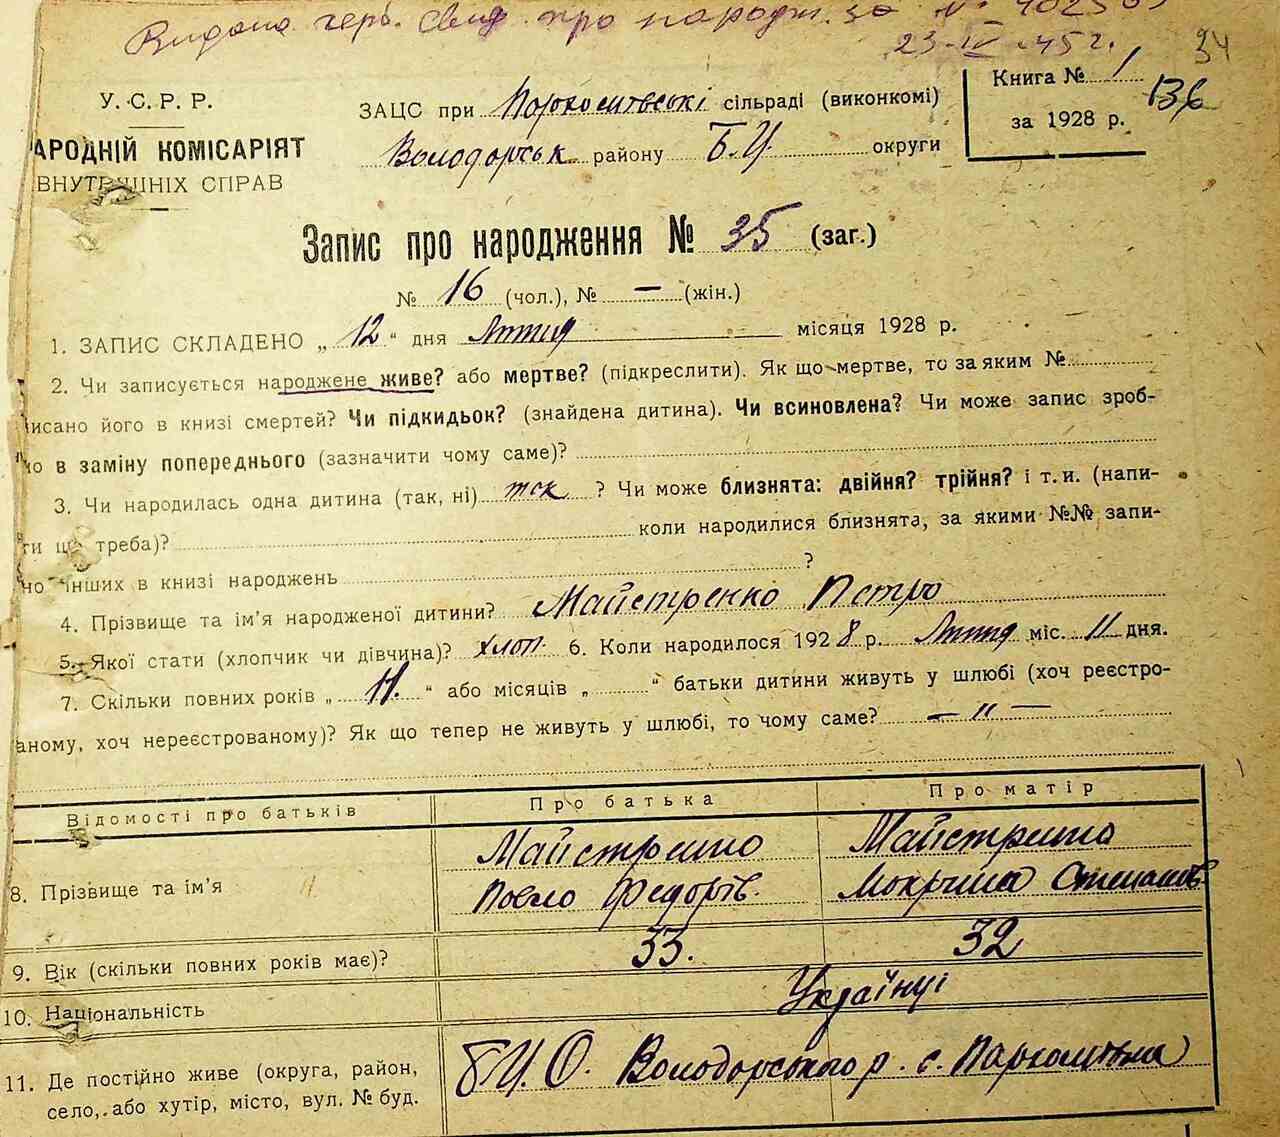 Видана черв. Свид. про народж. за №
23-IV-45 г.
34
У.С.Р.Р.
АРОДНІЙ КОМІСАРІЯТ
ВНУТРІШНІХ СПРАВ
ЗАЦС при Пархомівські сільраді (виконкомі)
Володорськ району Б.Ц. округи
Книга № 1
за 1928 р.
136
Запис про народження № 35 (заг.)
№ 16 (чол.), № — (жін.)
1. ЗАПИС СКЛАДЕНО „ 12 “ дня Лютня місяця 1928 р.
2. Чи записується народжене живе? або мертве? (підкреслити). Як що мертве, то за яким №
исано його в книзі смертей? Чи підкидьок? (знайдена дитина). Чи всиновлена? Чи може запис зроб-
но в заміну попереднього (зазначити чому саме)?
3. Чи народилась одна дитина (так, ні) так ? Чи може близнята: двійня? трійня? і т. и. (напи-
ти що треба)? коли народилися близнята, за якими №№ запи-
но інших в книзі народжень ?
4. Прізвище та ім’я народженої дитини? Майстренко Петро
5. Якої стати (хлопчик чи дівчина)? хлоп. 6. Коли народилося 1928 р. Лютня міс. 11 дня.
7. Скільки повних років „ 11. “ або місяців „ “ батьки дитини живуть у шлюбі (хоч реєстро-
аному, хоч нереєстрованому)? Як що тепер не живуть у шлюбі, то чому саме? — " —
Відомості про батьків Про батька Про матір
8. Прізвище та ім’я Майстренко Майстренко
Павло Федорів. Мокрина Степанів
9. Вік (скільки повних років має)? 33. 32
10. Національність Українці
11. Де постійно живе (округа, район, Б.Ц.О. Володорського р. с. Пархомівка
село, або хутір, місто, вул. № буд.